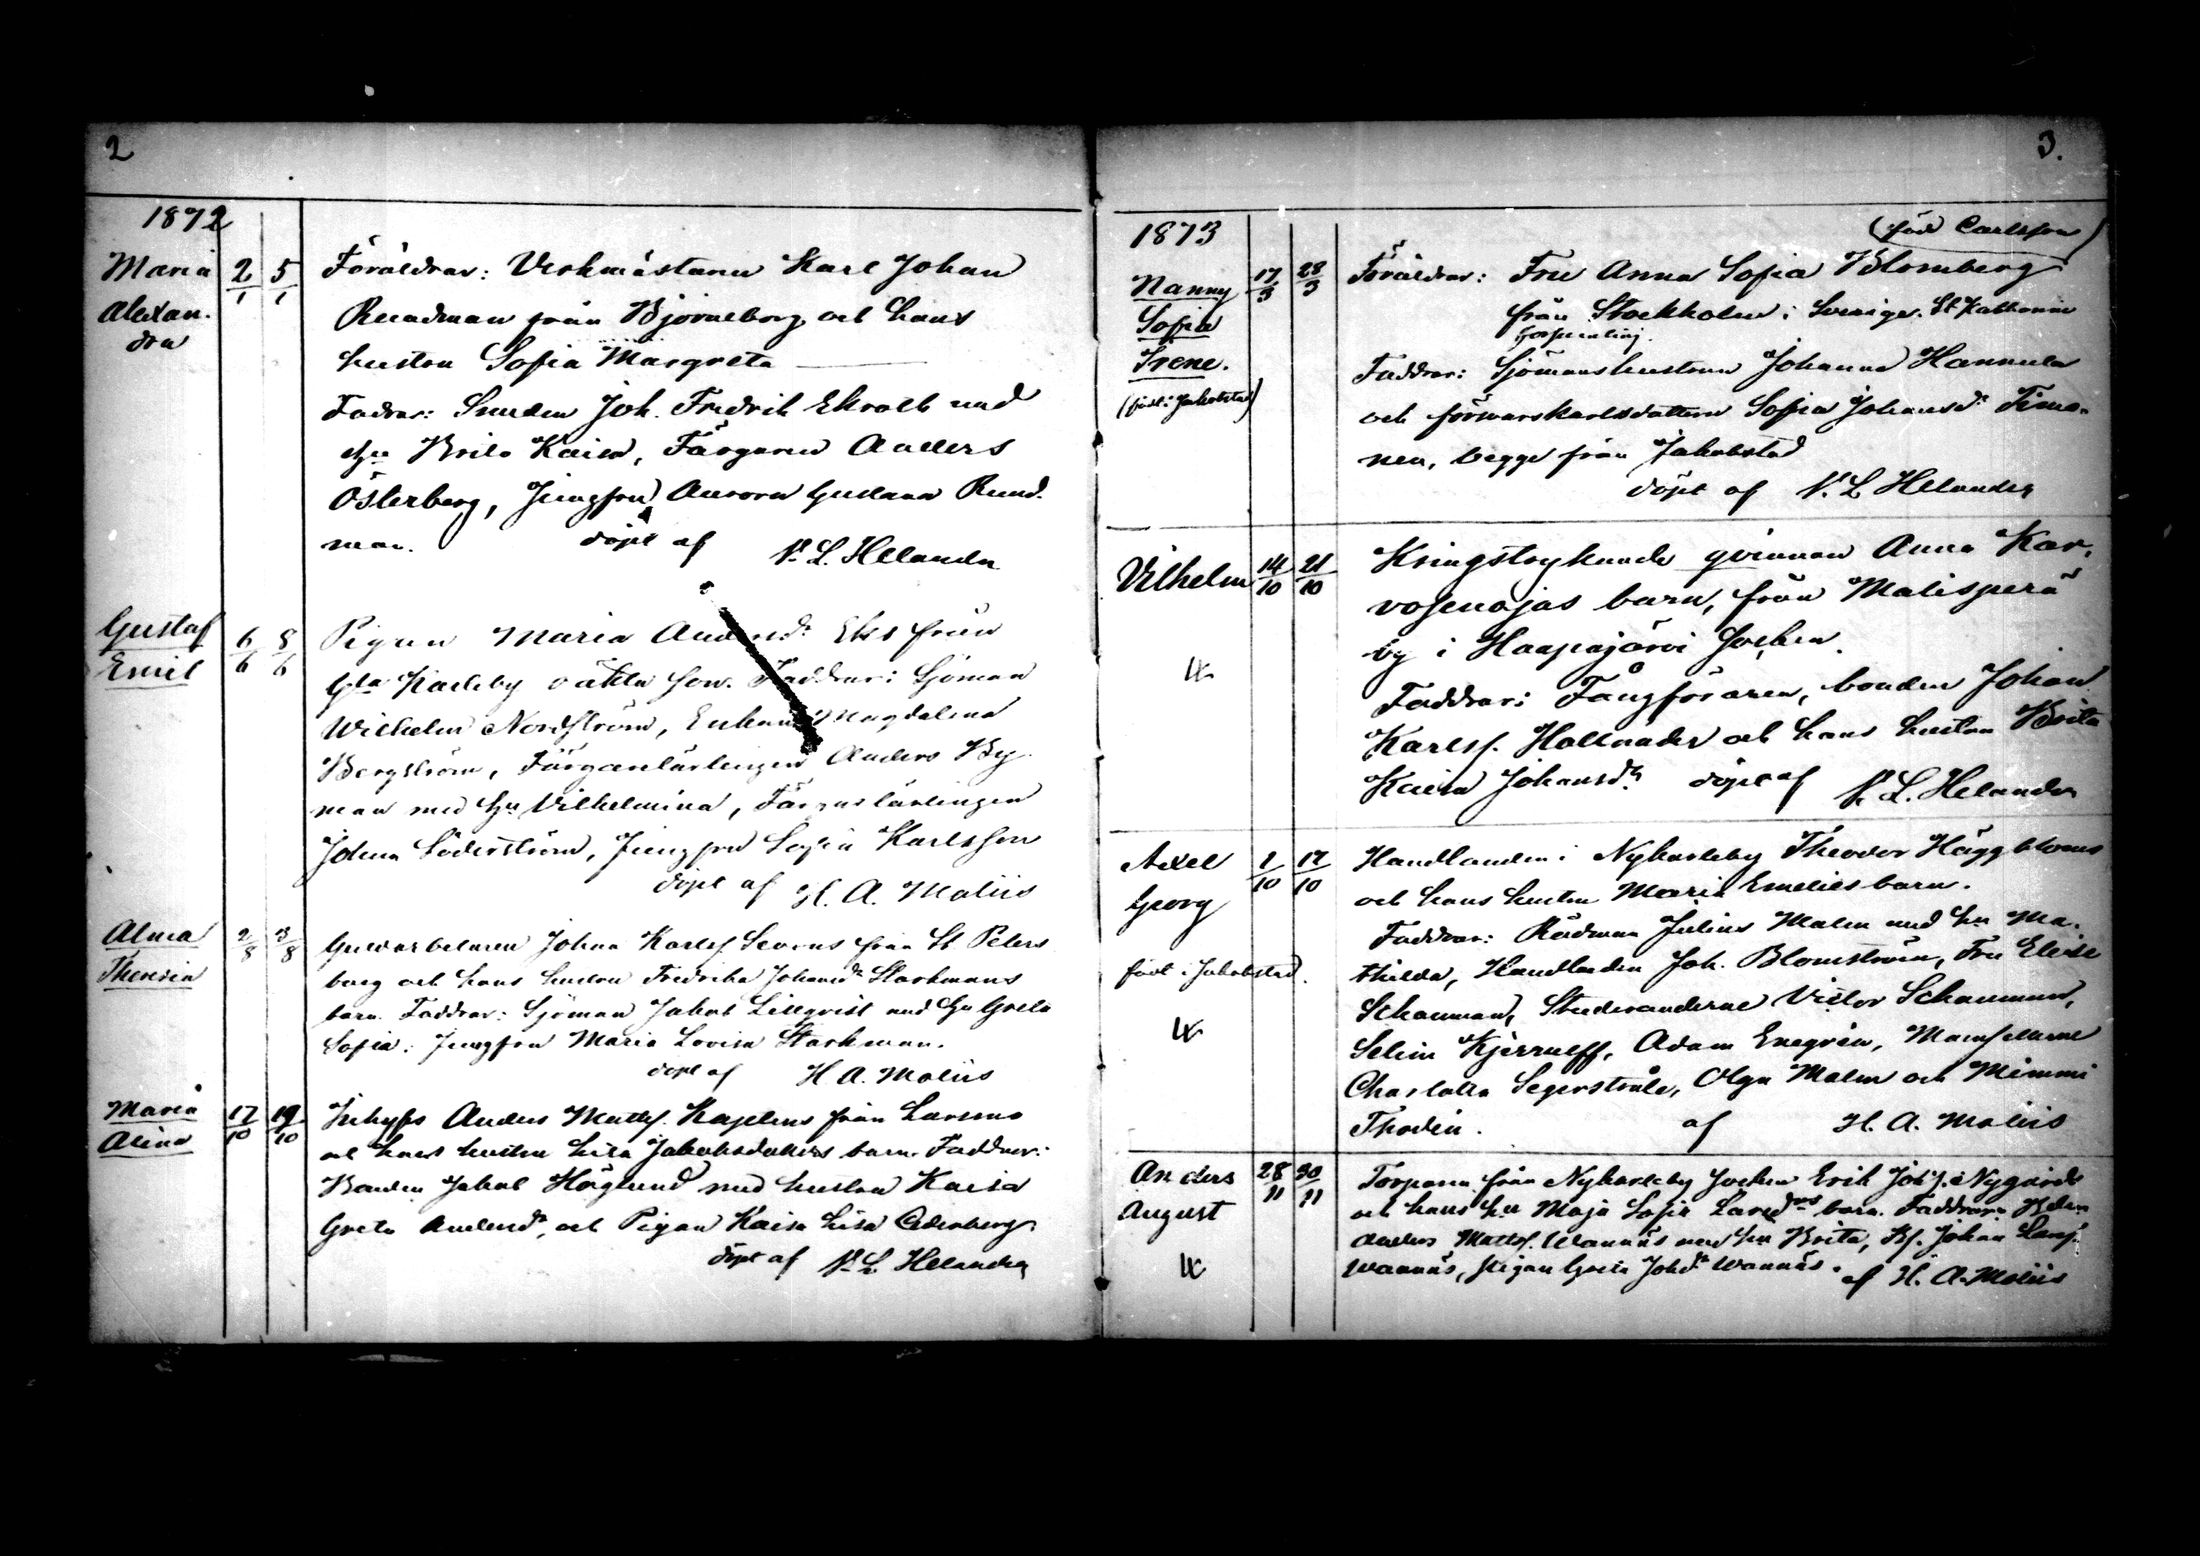 2
1872
Maria
Alexan-
dra
2/1 5/1
Föräldrar: Verkmästaren Karl Johan
Rundman från Björneborg och hans
hustru Sofia Margreta
Fadrar: Smeden Joh. Fredrik Ekroth med
Hu Brita Kaisa, Färgaren Anders
Österberg, Jungfru Aurora Gustava Rund-
man. döpt af N. L. Helander
Gustaf
Emil
6/6 8/6
Pigan Maria Andersdr från
Gla Karleby oäkta son. Faddrar: Sjöman
Wilhelm Nordström, Enkan Magdalena
Bergström, Färgarelärlingen Anders By-
man med Hu Vilhelmina, Färgarelärlingen
Johan Söderström, Jungfru Sofia Karlsson
döpt af H. A. Moliis
Alma
Theresia
2/8 3/8
Gevarbetaren Johan Karlss. från St Peters
burg och hans hustru Fredrika Johansdr Starkmans
barn. Faddrar: Sjöman Jakob Lillqvist med Hu Greta
Sofia, Jungfru Maria Lovisa Starkman.
döpt af H A. Moliis
Maria
Alina
17/10 19/10
Inhyses Anders Mattss. från Larsmo
och hans hustru Lisa Jakobsdotters barn. Faddrar:
Bonden Jakob Höglund med hustru Kaisa
Greta Andersdr, och Pigan Kaisa Lisa Cederberg.
döpt af N. L. Helander
3.
1873
(född Carlsson)
Nanny
Sofia
Irene.
(född i Jakobstad)
17/3 28/3
Föräldrar: Fru Anna Sofia Blomberg
från Stockholm i Sverige. St Katharina
församling.
Faddrar: Sjömanshustrun Johanna Hannula
och försvarskarlsdottern Sofia Johansdr Timo-
nen, begge från Jakobstad
döpt af N. L Helander
Vilhelm
14/10 21/10
Kringstrykande qvinnan Anna Kar-
vosenojas barn, från Matisperä
by i Haapajärvi Socken.
Faddrar: Fångföraren, bonden Johan
Karlss. Hollander och hans hustru Brita
Kaisa Johansdr. döpt af N. L. Helander
Axel
Georg
född i Jakobstad.
1/10 17/10
Handlanden i Nykarleby Theodor Häggbloms
och hans hustru Maria Emelies barn.
Faddrar: Rådman Julius Malm med hu Ma-
thilda, Handlanden Joh. Blomström, Fru Elise
Schauman, Studerandena Victor Schauman,
Selim Kjerrulff, Adam Enegren, Mamsellerne
Charlotta Segerstråle, Olga Malm och Mimmi
Thodén. af H. A. Moliis
Anders
August
28/11 30/11
Torparen från Nykarleby Socken Erik Johs. Nygårds
och hans hu Maja Sofia Larsdrs barn. Faddrar:
Anders Mattss. Wannäs med hu Brita, Bs. Johan Larss.
Wannäs, pigan Greta Johdr Wannäs. af H. A. Moliis